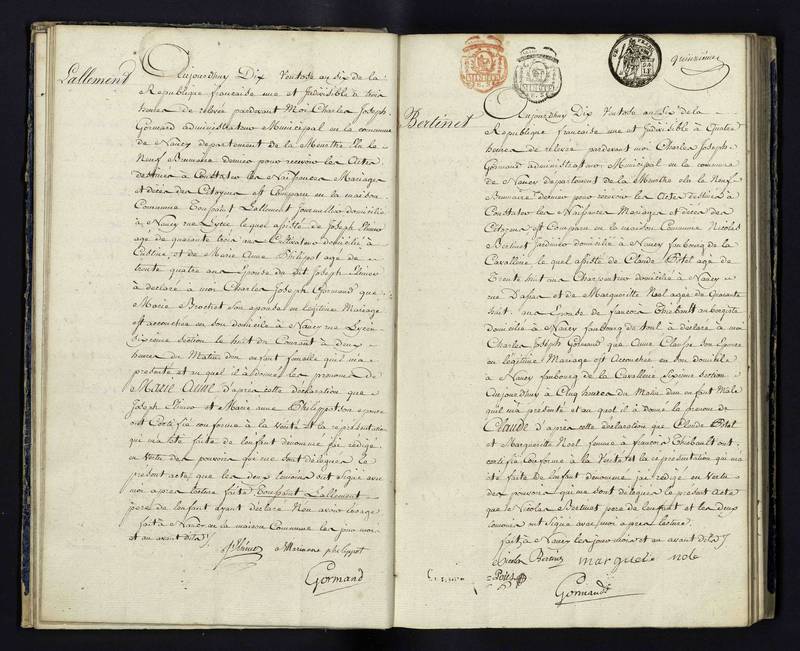 Lallement
Aujourdhuy Dix Ventose an six de la
Republique francaise une et Indivisible à trois
heures de relevée pardevant Moi Charles Joseph
Gormand administrateur Municipal en la commune
de Nancy departement de la Meurthe Elu le
Neuf Brumaire dernier pour recevoir les Actes
destinés à Constater les Naissances Mariages
et décès des Citoyens est Comparu en la maison
Commune Toussaint Lallement Journallier domicilié
à Nancy rue Lycée lequel assisté de Joseph
agé de quarante trois ans Cultivateur domicilié à
Custine, et de Marie Anne Philippot agé de
trente quatre ans Epouse du dit Joseph
à déclaré à moi Charles Joseph Gormand que
Marie Brochet son epouse en légitime Mariage
est accouchée en son domicile à Nancy rue Lycée
sixieme section le huit du Courant à deux
heures du Matin d'un enfant femelle qu'il m'a
presenté et au quel il à donné les prenoms de
Marie Anne D'après cette déclaration que
Joseph et Marie anne Philippot son epouse
ont Certifié conforme à la Verité et la représentation
qui m'a été faite de l'enfant dénommé j'ai rédigé
en vertu des pouvoirs qui me sont délégués le
présent acte que les deux temoins ont signé avec
moi apres lecture faite Toussaint Lallement
père de l'enfant ayant déclaré n'en avoir l'usage
fait à Nancy en la maison Commune les jour mois
et an avant dits
Marianne philippot
Gormand
quinzieme
Bertinet
Aujourdhuy Dix Ventose an Six de la
Republique francaise une et Indivisible à Quatre
heures de relevée pardevant moi Charles Joseph
Gormand administrateur Municipal en la commune
de Nancy Departement de la Meurthe elu le Neuf
Brumaire dernier pour recevoir les Actes destinés à
Constater les Naissances Mariages et décès des
Citoyens est Comparu en la maison Commune Nicolas
Bertinet Jardinier domicilié à Nancy faubourg de la
Cavallerie le quel assisté de Claude Pôtel agé de
Trente huit ans Charpentier domicilié à Nancy
rue et de Margueritte Noel agée de Quarante
huit ans Epouse de francois Thiébault
domicilié à Nancy faubourg de toul à déclaré à moi
Charles Joseph Gormand que Anne son Epouse
en légitime Mariage est Accouchée en son domicile
à Nancy faubourg de la Cavallerie Sixieme section
Aujourdhuy à Cinq heures du Matin d'un enfant Male
qu'il m'a présenté et au quel il à donné le prenom de
Claude D'après cette declaration que Claude Pôtel
et Margueritte Noel femme à francois Thiébault ont
certifié Conforme à la Verité et la représentation qui m'a
été faite de l'enfant dénommé jai redigé en vertu
des pouvoirs qui me sont délégués le présent Acte
que le Nicolas Bertinet pere de l'enfant et les deux
temoins ont signé avec moi apres lecture.
fait à Nancy les jour mois et an avant dits
Nicolas Bertinet marguerite nole
Potel
Gormand